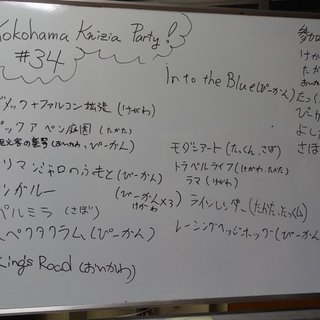 Yokohama Krizia Party!
#34
Into the Blue(ぴーかん)
メック+ファルコン拡張 (けがわ)
ック ア ペン麻因 (たかた)
(おいかわ, ぴーかん)
リマンジャロのふもと(ぴーかん)
ンガルー (ぴーかん×3)
けがわ
ペルミラ (さぼ)
ペクタクラム(ぴーかん)
King's Road (おいかわ)
モダンアート (たっくん、さぼ)
トラベルライフ(けがわ,たかた)
ラマ (けがわ)
ラインレンダー(たかた,たっくん)
レーシングヘッジホッグ(ぴーかん)
参加
けが
たか
おいか
たっく
ぴか
よし
さぼ